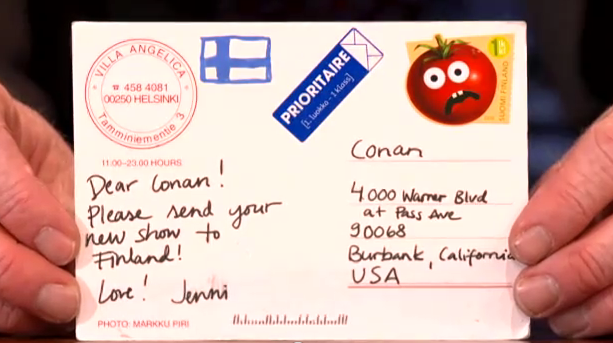 VILLA ANGELICA
☎ 458 4081
00250 HELSINKI
Tamminiementie 3
11:00-23.00 HOURS
PRIORITAIRE
[1. luokka - 1 klass]
SUOMI FINLAND
Dear Conan!
Please send your
new show to
Finland!
Love! Jenni
PHOTO: MARKKU PIRI
Conan
4000 Warner Blvd
at Pass Ave
90068
Burbank, California
USA